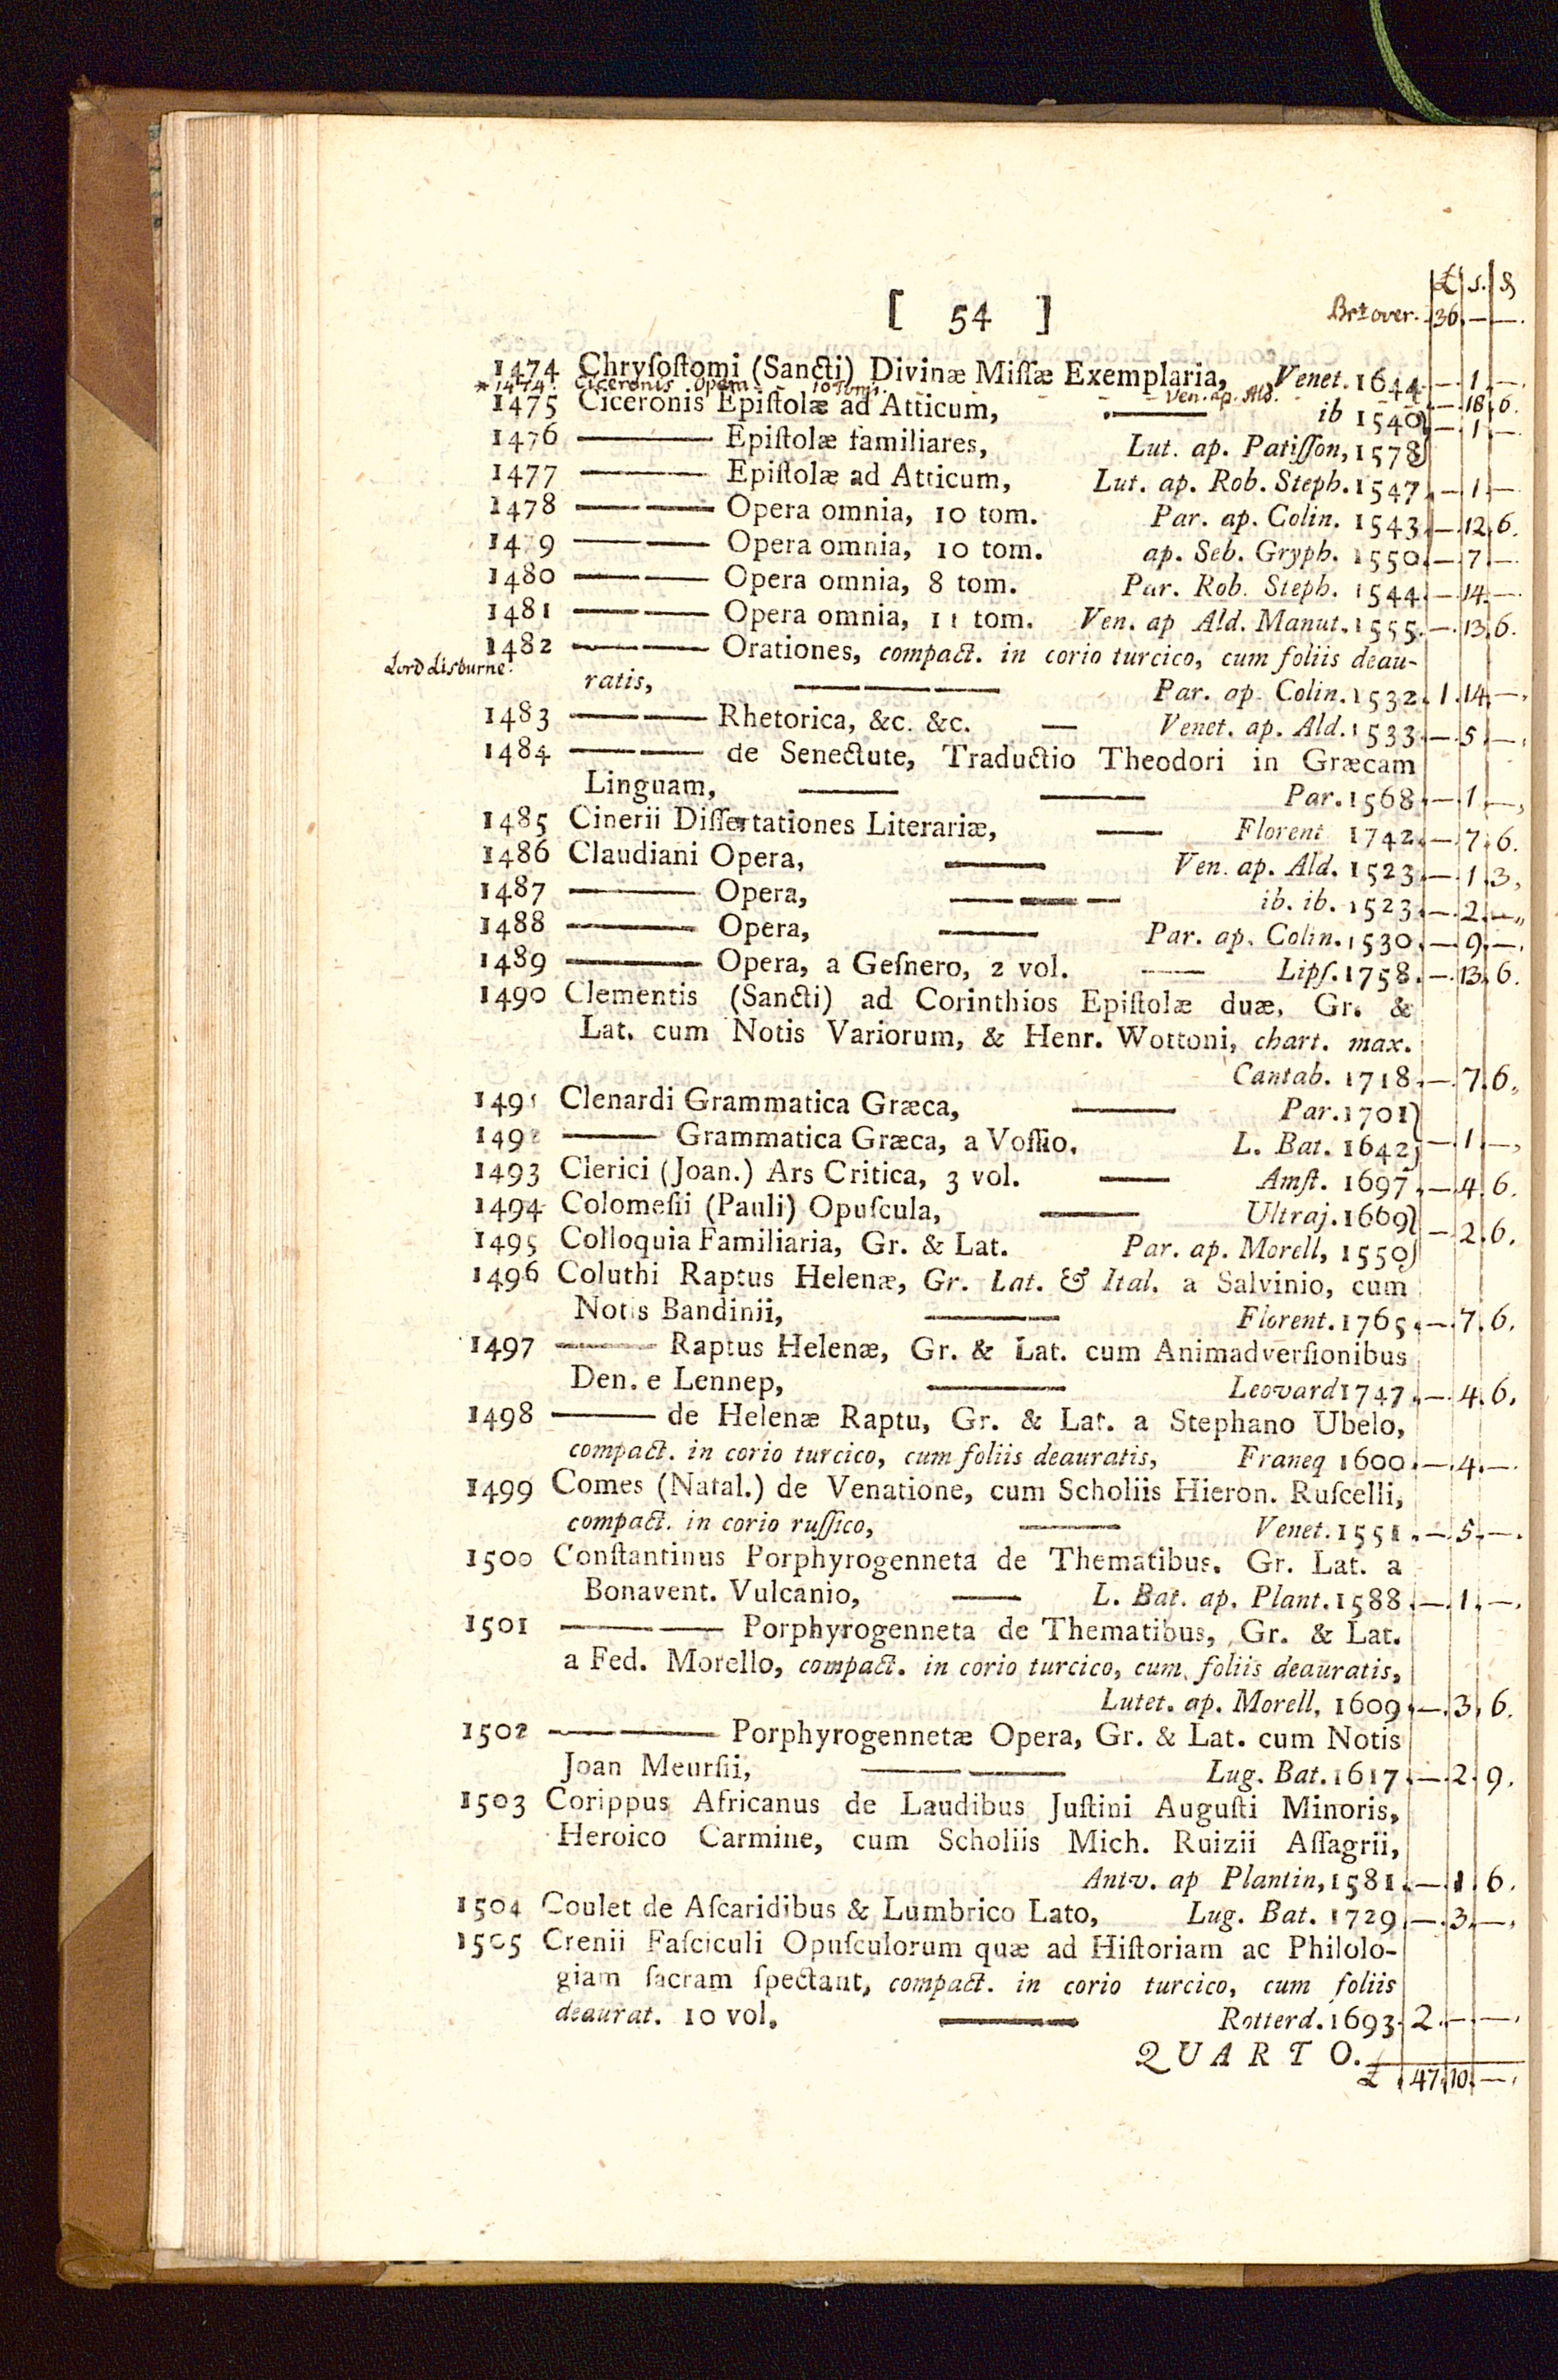 £ s. d
[ 54 ] Brt over. 36. — —.
1474 Chryſoſtomi (Sancti) Divinæ Miſſæ Exemplaria, Venet. 1644. — 1. —.
*1474. Ciceronis Opera - 10 Toms. - - - Ven. ap. Ald. - - - — 18. 6.
1475 Ciceronis Epiſtolæ ad Atticum, —— ib 1540} — 1. —.
1476 —— Epiſtolæ familiares, Lut. ap. Patiſſon, 1578}
1477 —— Epiſtolæ ad Atticum, Lut. ap. Rob. Steph. 1547. — 1. —
1478 —— —— Opera omnia, 10 tom. Par. ap. Colin. 1543. — 12. 6.
1479 —— —— Opera omnia, 10 tom. ap. Seb. Gryph. 1550. — 7. —.
1480 —— —— Opera omnia, 8 tom. Par. Rob. Steph. 1544. — 14. —.
1481 —— —— Opera omnia, 11 tom. Ven. ap Ald. Manut. 1555. — 13. 6.
1482 —— —— Orationes, compact. in corio turcico, cum foliis deau-
Lord Lisburne.
ratis, —— —— —— Par. ap. Colin. 1532. 1. 14. —.
1483 —— —— Rhetorica, &c. &c. — Venet. ap. Ald. 1533. — 5. —.
1484 —— —— de Senectute, Traductio Theodori in Græcam
Linguam, —— —— Par. 1568. — 1. —,
1485 Cinerii Diſſertationes Literariæ, —— Florent 1742. — 7. 6.
1486 Claudiani Opera, —— Ven. ap. Ald. 1523. — 1. 3,
1487 —— Opera, —— —— — ib. ib. 1523. — 2. —,
1488 —— Opera, —— Par. ap. Colin. 1530. — 9. —.
1489 —— Opera, a Geſnero, 2 vol. —— Lipſ. 1758. — 13. 6.
1490 Clementis (Sancti) ad Corinthios Epiſtolæ duæ, Gr. &
Lat. cum Notis Variorum, & Henr. Wottoni, chart. max.
Cantab. 1718. — 7. 6,
1491 Clenardi Grammatica Græca, —— Par. 1701}
1492 —— Grammatica Græca, a Voſſio. L. Bat. 1642} — 1. —,
1493 Clerici (Joan.) Ars Critica, 3 vol. —— Amſt. 1697. — 4. 6.
1494 Colomeſii (Pauli) Opuſcula, —— Ultraj. 1669} — 2. 6.
1495 Colloquia Familiaria, Gr. & Lat. Par. ap. Morell, 1550}
1496 Coluthi Raptus Helenæ, Gr. Lat. & Ital. a Salvinio, cum
Notis Bandinii, —— Florent. 1765. — 7. 6.
1497 —— Raptus Helenæ, Gr. & Lat. cum Animadverſionibus
Den. e Lennep, —— Leovard 1747. — 4. 6,
1498 —— de Helenæ Raptu, Gr. & Lat. a Stephano Ubelo,
compact. in corio turcico, cum foliis deauratis, Franeq 1600. — 4. —.
1499 Comes (Natal.) de Venatione, cum Scholiis Hieron. Ruſcelli,
compact. in corio ruſſico, —— Venet. 1551. — 5. —.
1500 Conſtantinus Porphyrogenneta de Thematibus, Gr. Lat. a
Bonavent. Vulcanio, —— L. Bat. ap. Plant. 1588. — 1. —.
1501 —— —— Porphyrogenneta de Thematibus, Gr. & Lat.
a Fed. Morello, compact. in corio turcico, cum foliis deauratis,
Lutet. ap. Morell, 1609. — 3. 6.
1502 —— —— Porphyrogennetæ Opera, Gr. & Lat. cum Notis
Joan Meurſii, —— —— Lug. Bat. 1617. — 2. 9.
1503 Corippus Africanus de Laudibus Juſtini Auguſti Minoris,
Heroico Carmine, cum Scholiis Mich. Ruizii Aſſagrii,
Antv. ap Plantin, 1581. — 1. 6.
1504 Coulet de Aſcaridibus & Lumbrico Lato, Lug. Bat. 1729. — 3. —,
1505 Crenii Faſciculi Opuſculorum quæ ad Hiſtoriam ac Philolo-
giam ſacram ſpectant, compact. in corio turcico, cum foliis
deaurat. 10 vol. —— Rotterd. 1693. 2. — —.
QUARTO.
£ 47. 10. —.